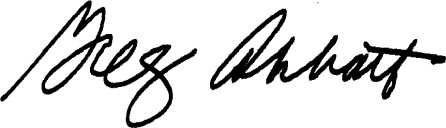 Greg Abbott